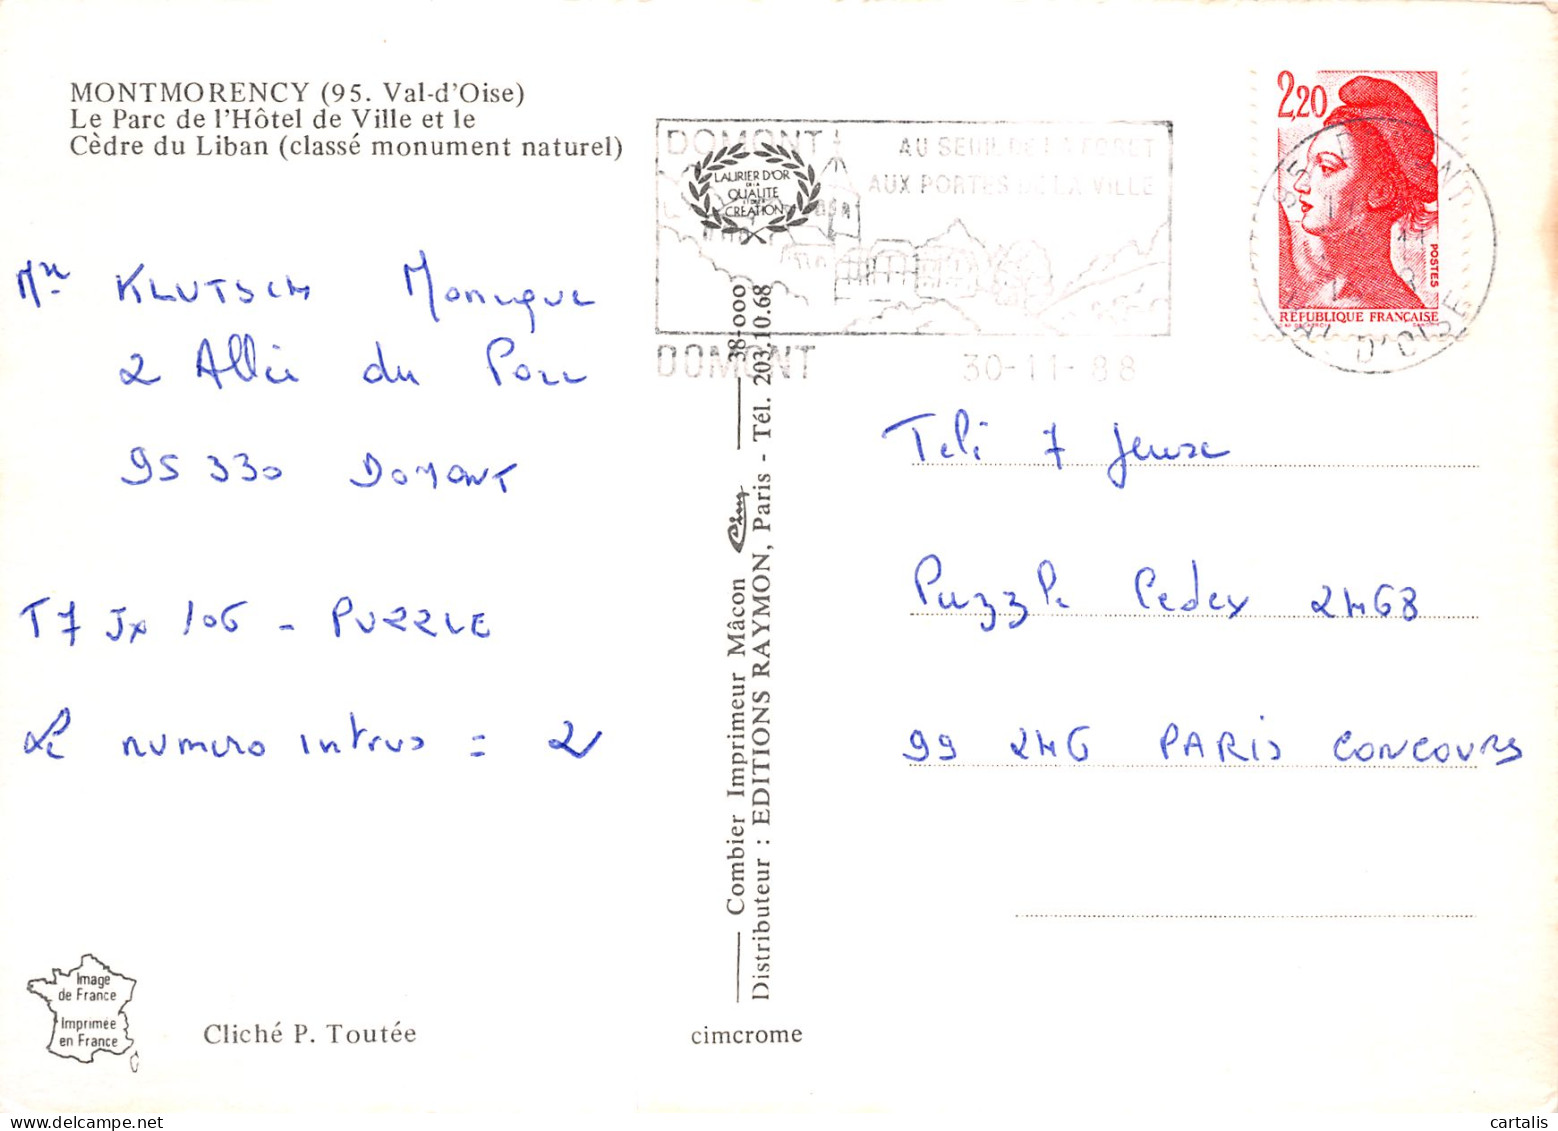 MONTMORENCY (95. Val-d'Oise)
Le Parc de l'Hôtel de Ville et le
Cèdre du Liban (classé monument naturel)
KLUTSCH Monique
2 Allée du Parc
95 330 DOMONT
T7 Jx 106 - PUZZLE
Le numero intrus = 2
Image
de France
Imprimée
en France
Cliché P. Toutée
cimcrome
Combier Imprimeur Mâcon Cim 38-000
Distributeur : EDITIONS RAYMON, Paris - Tél. 203.10.68
DOMONT
AU SEUIL DE LA FORET
AUX PORTES DE LA VILLE
LAURIER D'OR
DE LA
QUALITE
ET DE LA
CREATION
DOMONT
30-11-88
2,20
POSTES
RÉPUBLIQUE FRANÇAISE
95 DOMONT
VAL D'OISE
Téli 7 Jeux
Puzzle Cedex 2468
99 246 PARIS CONCOURS
cartalis